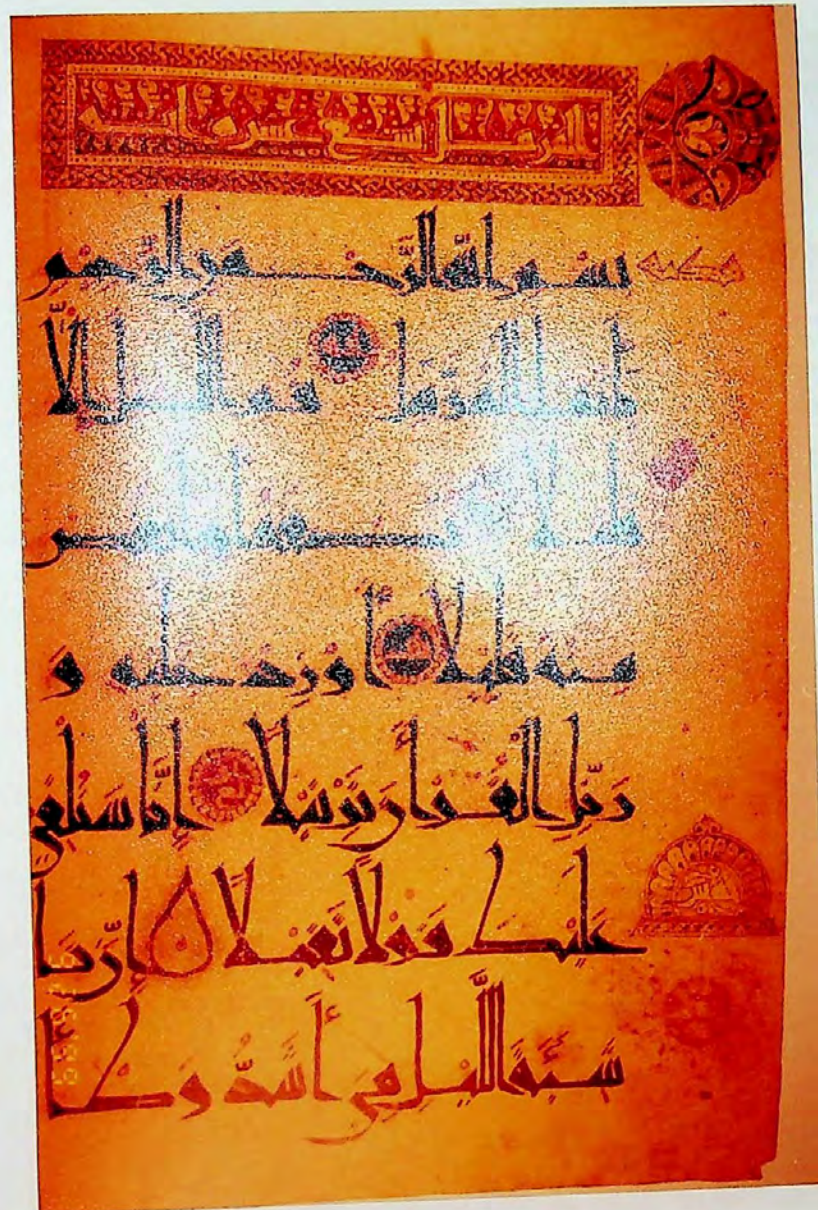 المزمل تسع عشره آية
بِسْمِ اللَّهِ الرَّحْمَنِ الرَّحِيمِ مكية
يَأَيُّهَا الْمُزَّمِّلُ قُمِ اللَّيْلَ إِلَّا
قَلِيلًا نِصْفَهُ أَوِ انْقُصْ
مِنْهُ قَلِيلًا أَوْ زِدْ عَلَيْهِ وَ
رَتِّلِ الْقُرْآنَ تَرْتِيلًا إِنَّا سَنُلْقِي
عَلَيْكَ قَوْلًا ثَقِيلًا إِنَّ نَا
شِئَةَ اللَّيْلِ هِيَ أَشَدُّ وَطْا